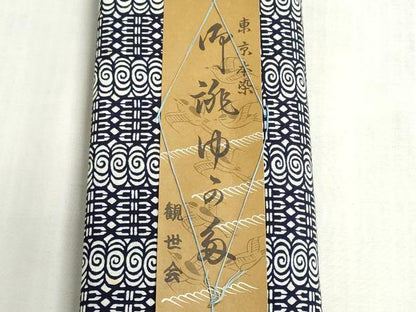 東京本染
御誂ゆかた
観世会